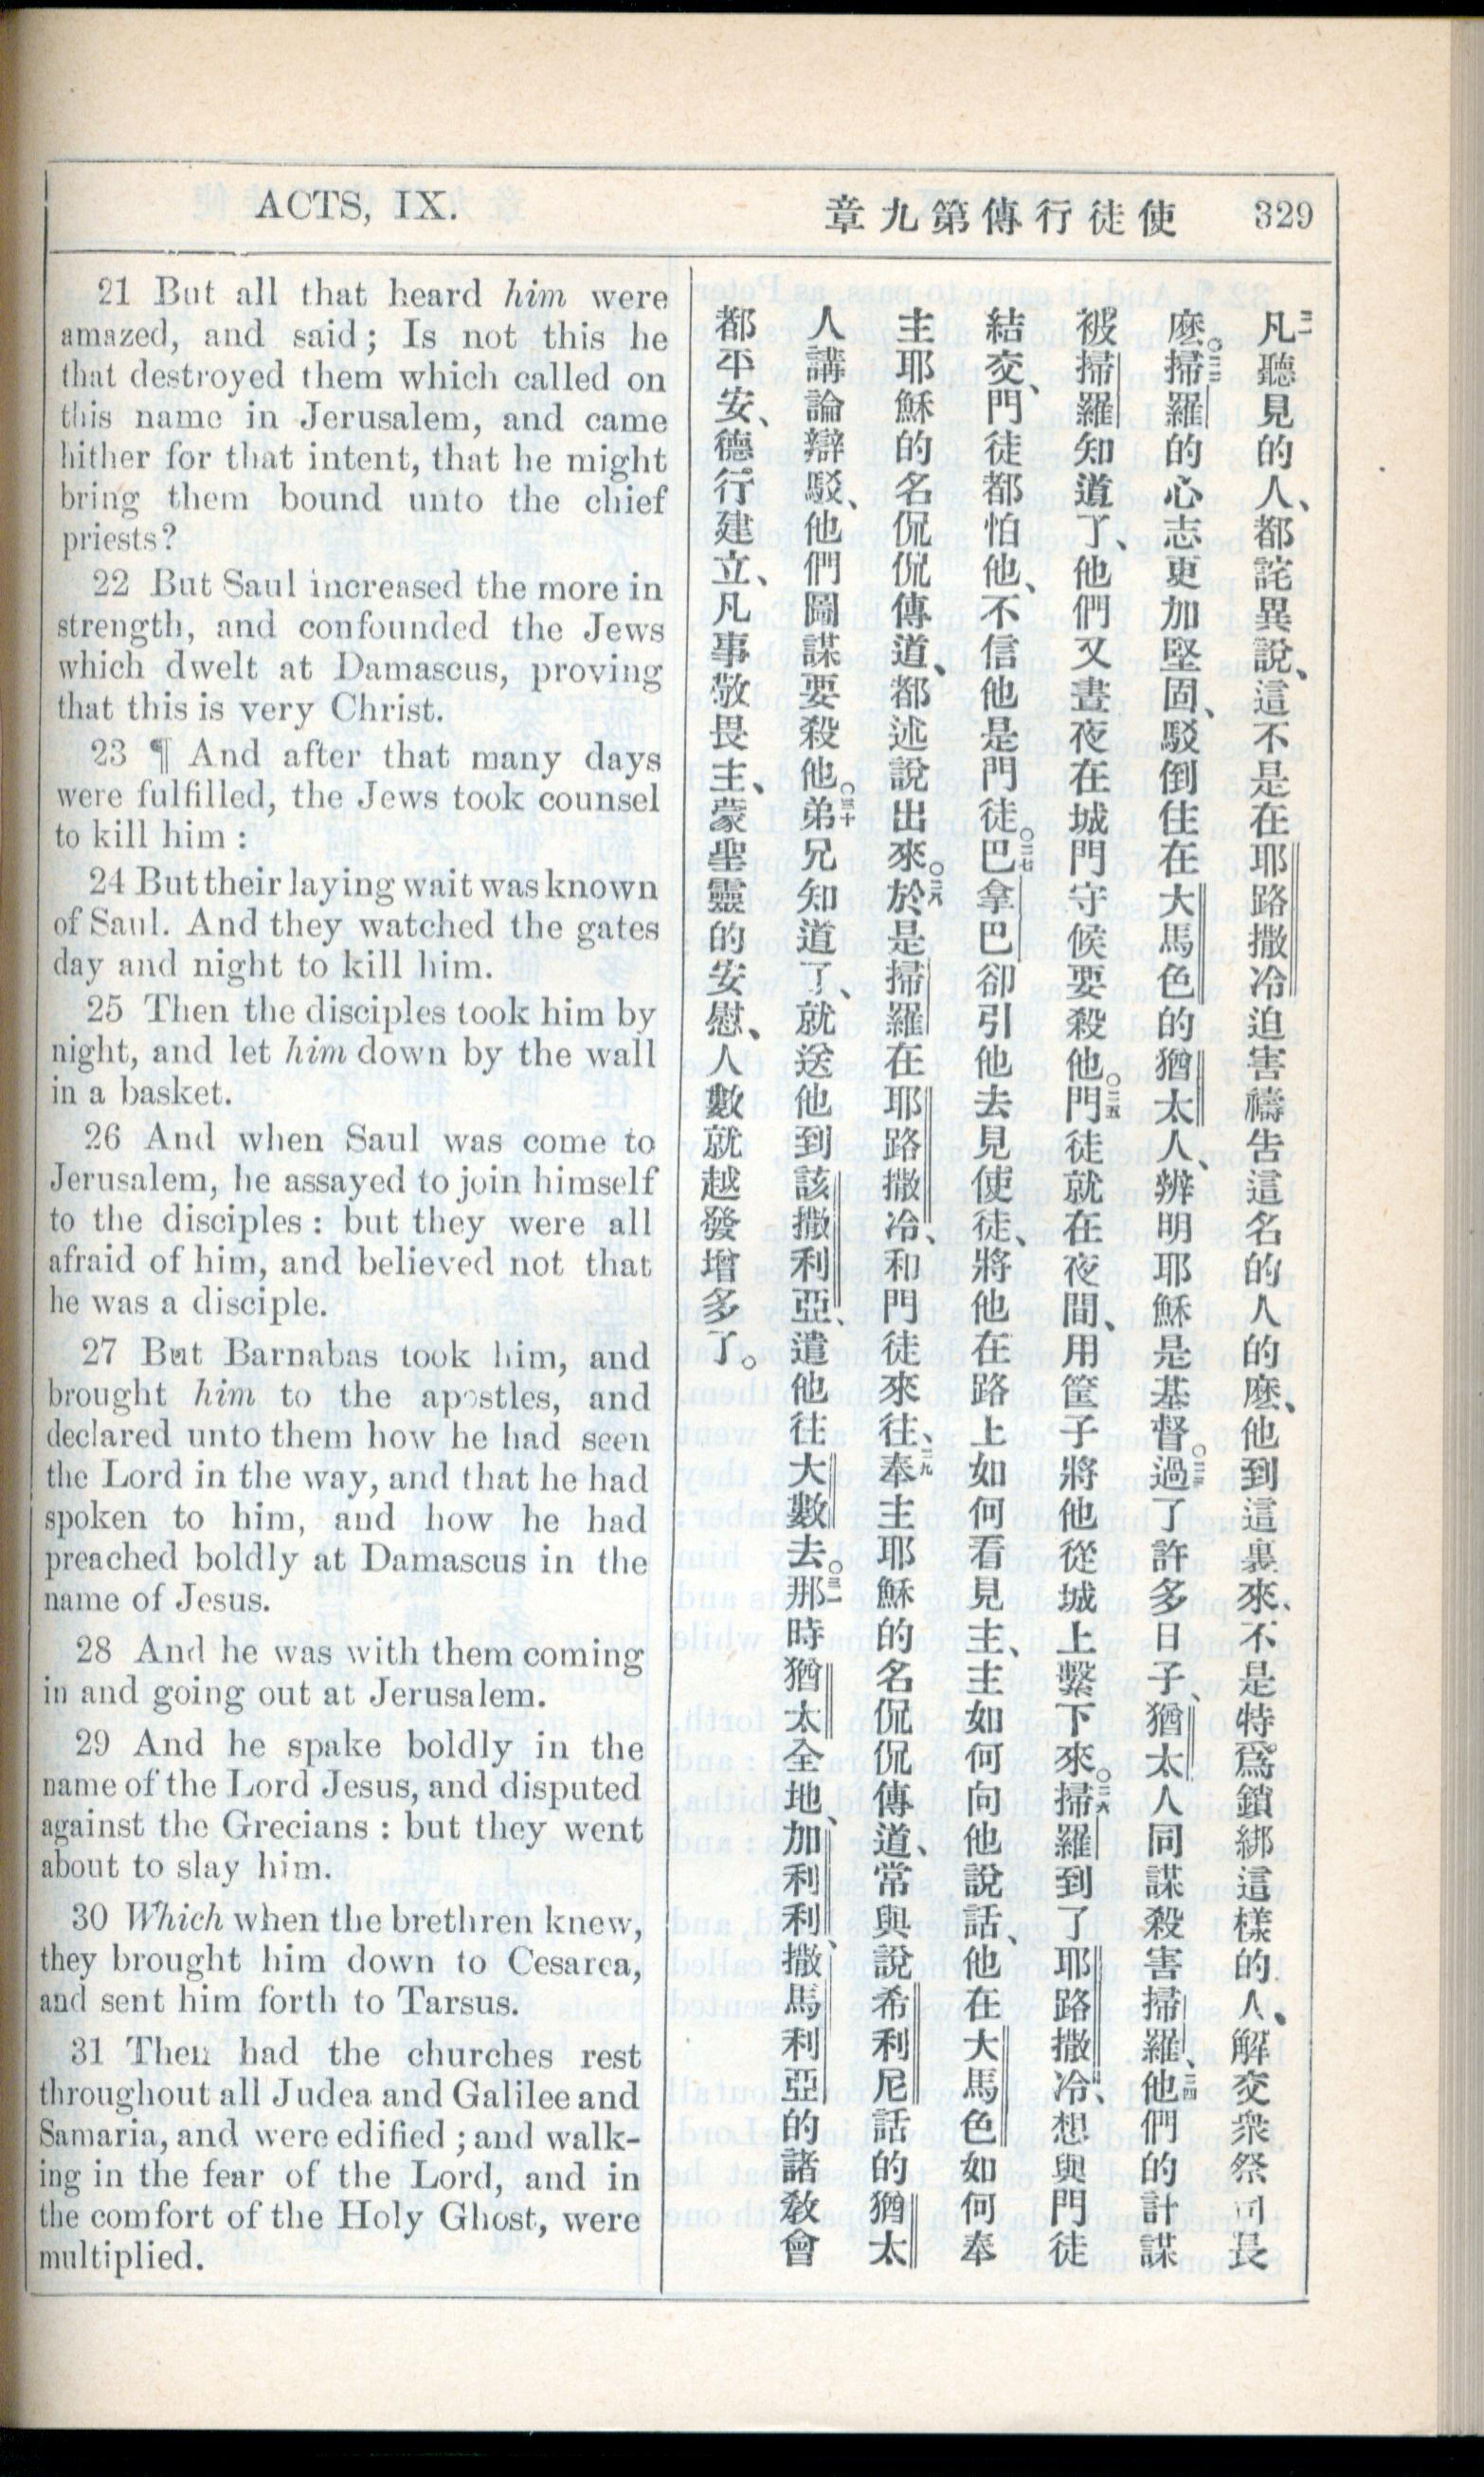 ACTS, IX.
章九第傳行徒使 329
21 But all that heard him were
amazed, and said; Is not this he
that destroyed them which called on
this name in Jerusalem, and came
hither for that intent, that he might
bring them bound unto the chief
priests?
22 But Saul increased the more in
strength, and confounded the Jews
which dwelt at Damascus, proving
that this is very Christ.
23 ¶ And after that many days
were fulfilled, the Jews took counsel
to kill him:
24 But their laying wait was known
of Saul. And they watched the gates
day and night to kill him.
25 Then the disciples took him by
night, and let him down by the wall
in a basket.
26 And when Saul was come to
Jerusalem, he assayed to join himself
to the disciples: but they were all
afraid of him, and believed not that
he was a disciple.
27 But Barnabas took him, and
brought him to the apostles, and
declared unto them how he had seen
the Lord in the way, and that he had
spoken to him, and how he had
preached boldly at Damascus in the
name of Jesus.
28 And he was with them coming
in and going out at Jerusalem.
29 And he spake boldly in the
name of the Lord Jesus, and disputed
against the Grecians: but they went
about to slay him.
30 Which when the brethren knew,
they brought him down to Cesarea,
and sent him forth to Tarsus.
31 Then had the churches rest
throughout all Judea and Galilee and
Samaria, and were edified; and walk-
ing in the fear of the Lord, and in
the comfort of the Holy Ghost, were
multiplied.
二一凡聽見的人、都詫異說、這不是在耶路撒冷迫害禱告這名的人的麽、他到這裏來、不是特爲鎖綁這樣的人、解交衆祭司長
麽。○二二掃羅的心志更加堅固、駁倒住在大馬色的猶太人、辨明耶穌是基督。○二三過了許多日子、猶太人同謀殺害掃羅、二四他們的計謀
被掃羅知道了、他們又晝夜在城門守候要殺他。○二五門徒就在夜間、用筐子將他從城上繫下來。○二六掃羅到了耶路撒冷、想與門徒
結交、門徒都怕他、不信他是門徒。○二七巴拿巴卻引他去見使徒、將他在路上如何看見主、主如何向他說話、他在大馬色如何奉
主耶穌的名侃侃傳道、都述說出來。○二八於是掃羅在耶路撒冷、和門徒來往、二九奉主耶穌的名侃侃傳道、常與說希利尼話的猶太
人講論辯駁、他們圖謀要殺他。○三十弟兄知道了、就送他到該撒利亞、遣他往大數去。○三一那時猶太全地、加利利、撒馬利亞的諸教會
都平安、德行建立、凡事敬畏主、蒙聖靈的安慰、人數就越發增多了。